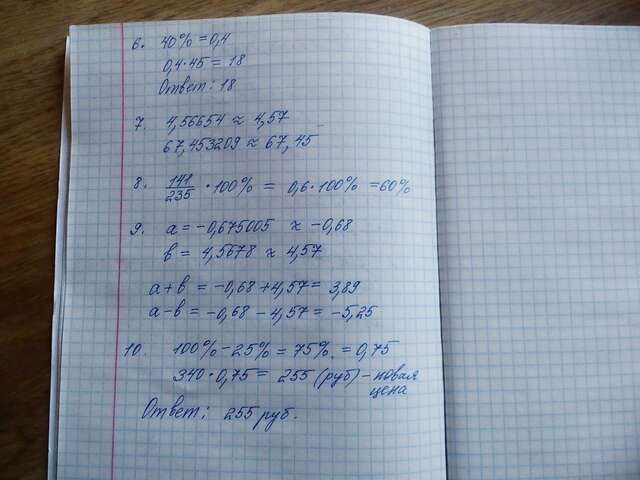 6. 40% = 0,4
0,4·45 = 18
Ответ: 18
7. 4,56654 ≈ 4,57
67,453209 ≈ 67,45
8. 141/235 · 100% = 0,6·100% = 60%
9. a = -0,675005 ≈ -0,68
в = 4,5678 ≈ 4,57
a+в = -0,68+4,57 = 3,89
a-в = -0,68-4,57 = -5,25
10. 100%-25% = 75% = 0,75
340·0,75 = 255 (руб) - новая
цена
Ответ: 255 руб.